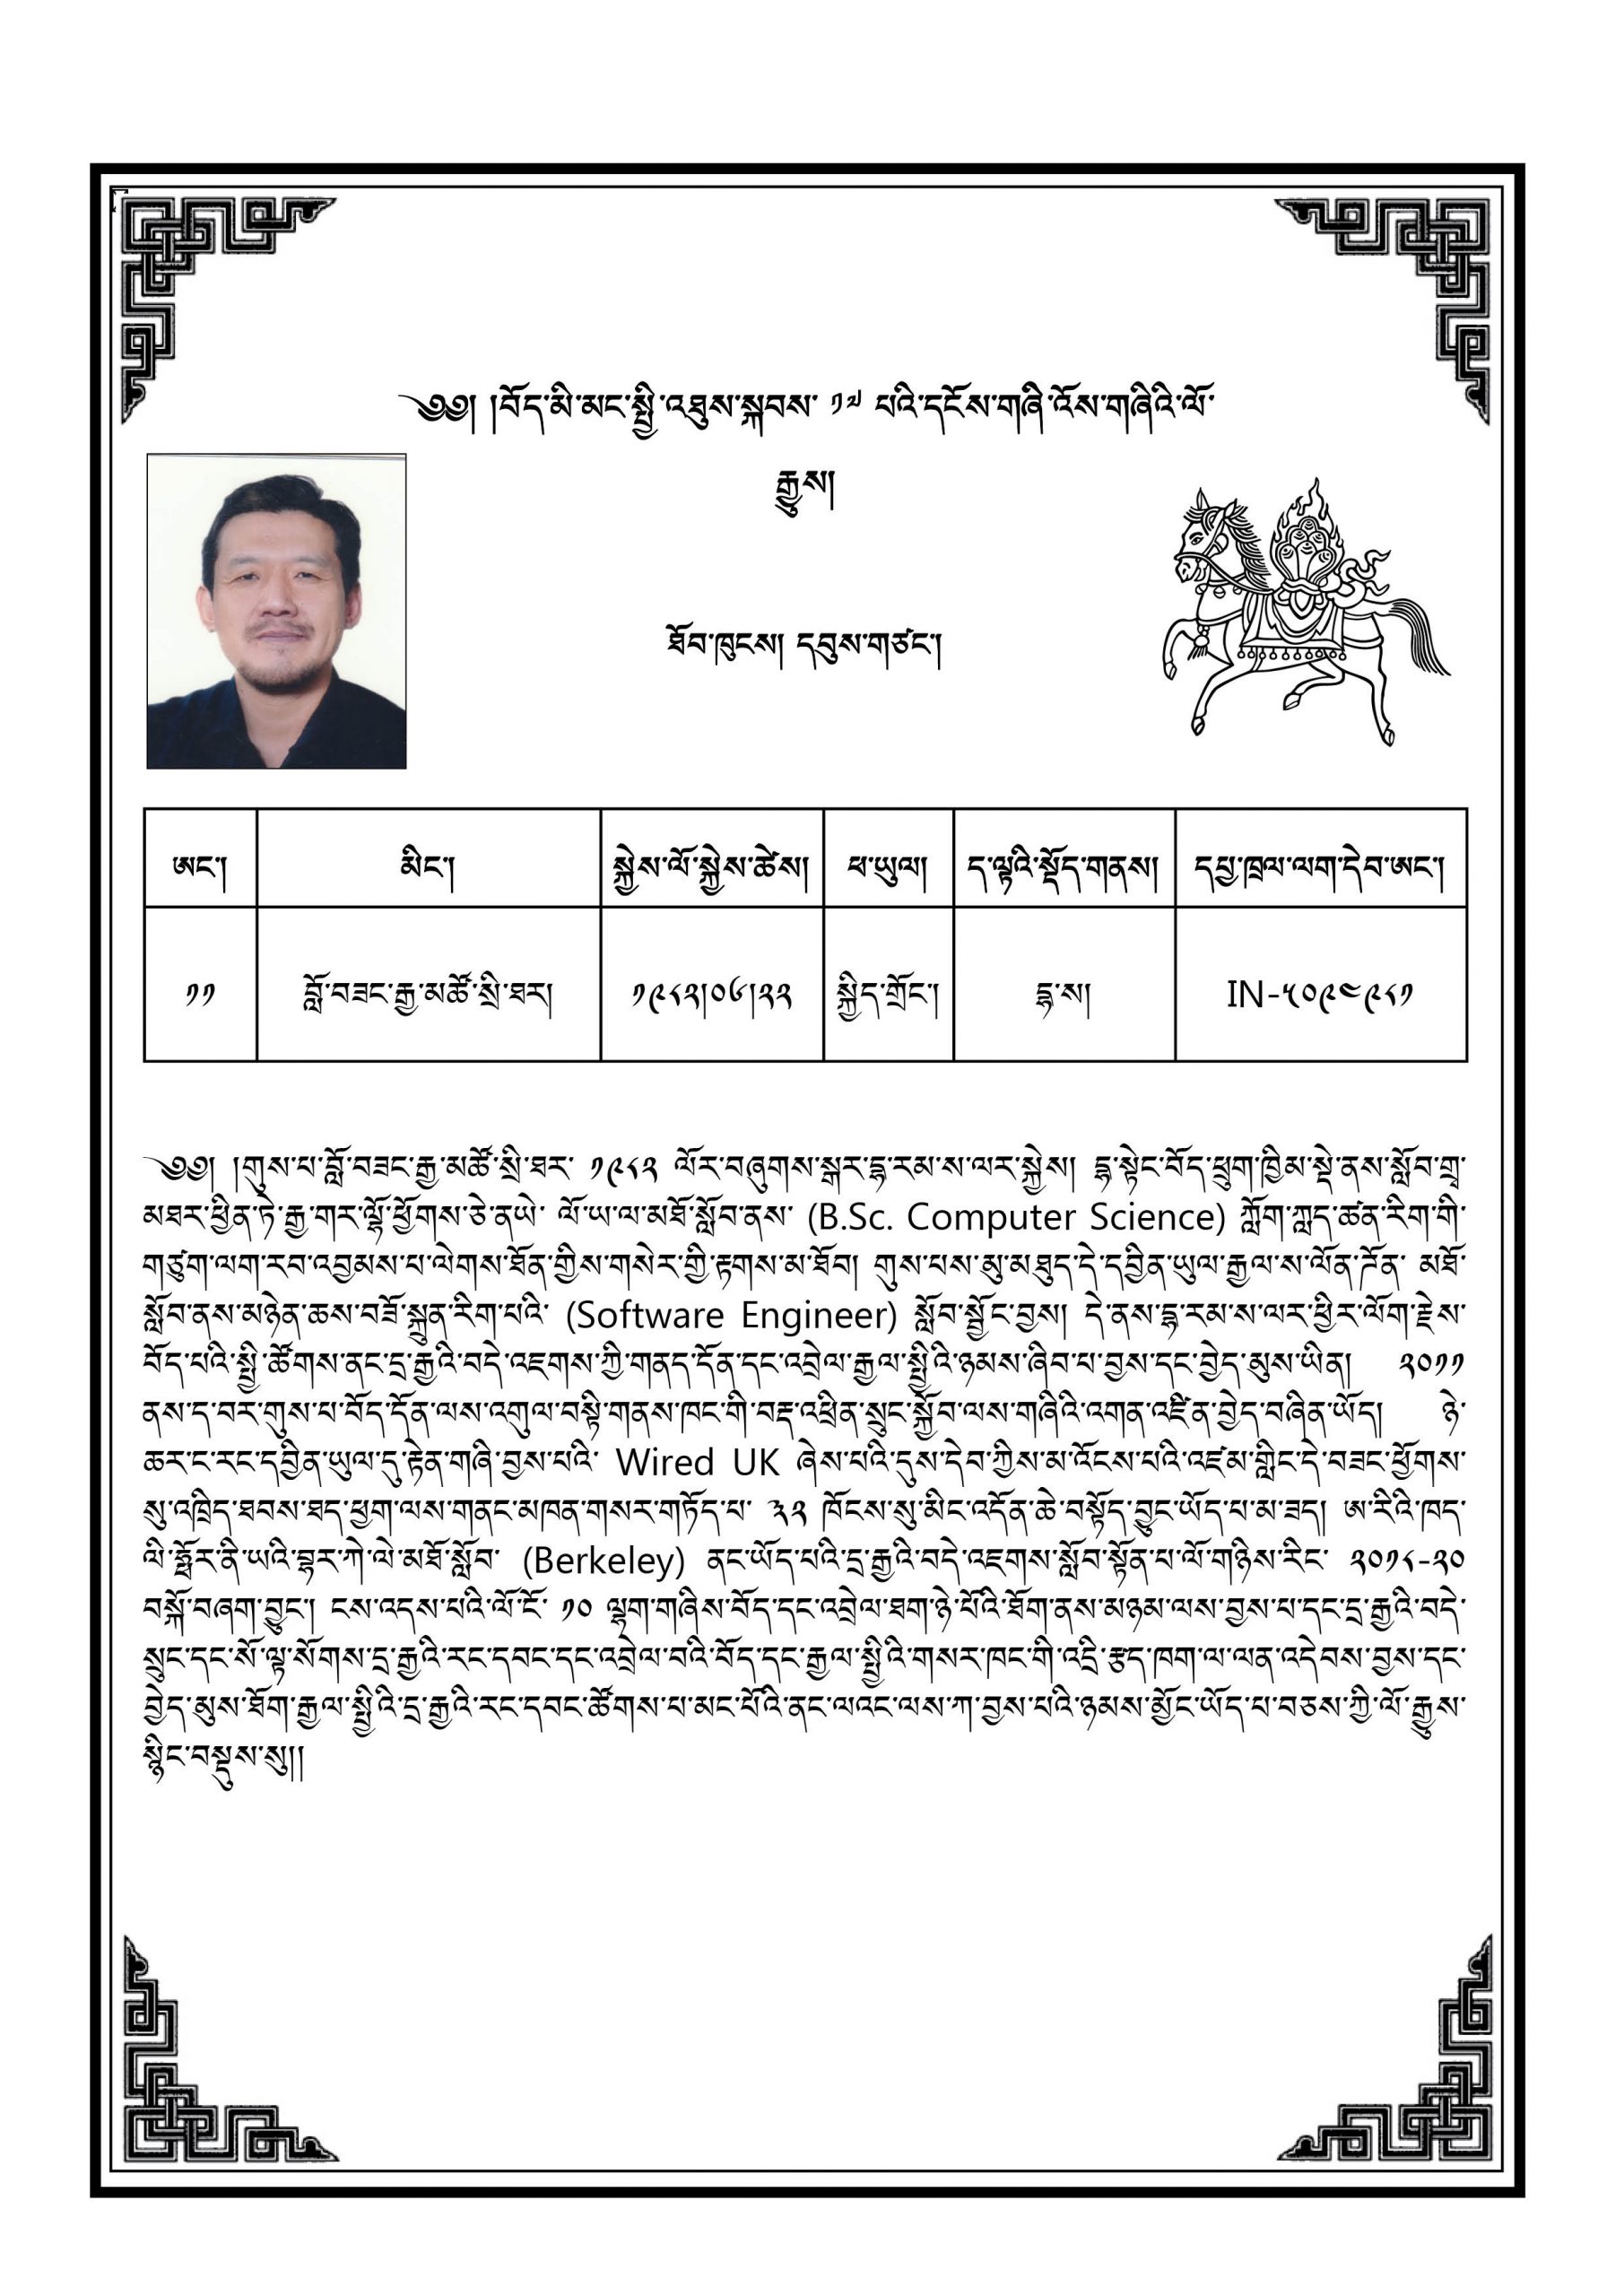 ༄༅། །བོད་མི་མང་སྤྱི་འཐུས་སྐབས་ ༡༧ པའི་དངོས་གཞི་འོས་གཞིའི་ལོ་
རྒྱུས།
ཐོབ་ཁུངས། དབུས་གཙང་།
ཨང་། མིང་། སྐྱེས་ལོ་སྐྱེས་ཚེས། ཕ་ཡུལ། ད་ལྟའི་སྡོད་གནས། དཔྱ་ཁྲལ་ལག་དེབ་ཨང་།
༡༡ བློ་བཟང་རྒྱ་མཚོ་སྲི་ཐར། ༡༩༨༢།༠༦།༢༢ སྐྱིད་གྲོང་། དྷ་ས། IN-༥༠༩༤༩༨༡
༄༅། །གུས་པ་བློ་བཟང་རྒྱ་མཚོ་སྲི་ཐར་ ༡༩༨༢ ལོར་བཞུགས་སྒར་དྷ་རམ་ས་ལར་སྐྱེས། དྷ་སྟེང་བོད་ཕྲུག་ཁྱིམ་སྡེ་ནས་སློབ་གྲྭ་
མཐར་ཕྱིན་ཏེ་རྒྱ་གར་ལྷོ་ཕྱོགས་ཅེ་ནཡེ་ ལོ་ཡ་ལ་མཐོ་སློབ་ནས་ (B.Sc. Computer Science) ཀློག་ཀླད་ཚན་རིག་གི་
གཙུག་ལག་རབ་འབྱམས་པ་ལེགས་ཐོན་གྱིས་གསེར་གྱི་རྟགས་མ་ཐོབ། གུས་པས་མུ་མཐུད་དེ་དབྱིན་ཡུལ་རྒྱལ་ས་ལོན་ཌོན་ མཐོ་
སློབ་ནས་མཉེན་ཆས་བཟོ་སྐྲུན་རིག་པའི་ (Software Engineer) སློབ་སྦྱོང་བྱས། དེ་ནས་དྷ་རམ་ས་ལར་ཕྱིར་ལོག་རྗེས་
བོད་པའི་སྤྱི་ཚོགས་ནང་དྲ་རྒྱའི་བདེ་འཇགས་ཀྱི་གནད་དོན་དང་འབྲེལ་རྒྱལ་སྤྱིའི་ཉམས་ཞིབ་པ་བྱས་དང་བྱེད་མུས་ཡིན། ༢༠༡༡
ནས་ད་བར་གུས་པ་བོད་དོན་ལས་འགུལ་བསྟི་གནས་ཁང་གི་བརྡ་འཕྲིན་སྲུང་སྐྱོབ་ལས་གཞིའི་འགན་འཛིན་བྱེད་བཞིན་ཡོད། ཉེ་
ཆར་ང་རང་དབྱིན་ཡུལ་དུ་རྟེན་གཞི་བྱས་པའི་ Wired UK ཞེས་པའི་དུས་དེབ་ཀྱིས་མ་འོངས་པའི་འཛམ་གླིང་དེ་བཟང་ཕྱོགས་
སུ་འཁྲིད་ཐབས་ཐད་ཕྱག་ལས་གནང་མཁན་གསར་གཏོད་པ་ ༣༢ ཁོངས་སུ་མིང་འདོན་ཆེ་བསྟོད་བྱུང་ཡོད་པ་མ་ཟད། ཨ་རིའི་ཁད་
ལི་ཧྥོར་ནི་ཡའི་བྷར་ཀེ་ལེ་མཐོ་སློབ་ (Berkeley) ནང་ཡོད་པའི་དྲ་རྒྱའི་བདེ་འཇགས་སློབ་སྟོན་པ་ལོ་གཉིས་རིང་ ༢༠༡༨-༢༠
བསྐོ་བཞག་བྱུང་། ངས་འདས་པའི་ལོ་ངོ་ ༡༠ ལྷག་གཞིས་བོད་དང་འབྲེལ་ཐག་ཉེ་པོའི་ཐོག་ནས་མཉམ་ལས་བྱས་པ་དང་དྲ་རྒྱའི་བདེ་
སྲུང་དང་སོ་ལྟ་སོགས་དྲ་རྒྱའི་རང་དབང་དང་འབྲེལ་བའི་བོད་དང་རྒྱལ་སྤྱིའི་གསར་ཁང་གི་འདྲི་རྩད་ཁག་ལ་ལན་འདེབས་བྱས་དང་
བྱེད་མུས་ཐོག་རྒྱལ་སྤྱིའི་དྲ་རྒྱའི་རང་དབང་ཚོགས་པ་མང་པོའི་ནང་ལའང་ལས་ཀ་བྱས་པའི་ཉམས་མྱོང་ཡོད་པ་བཅས་ཀྱི་ལོ་རྒྱུས་
སྙིང་བསྡུས་སུ།།